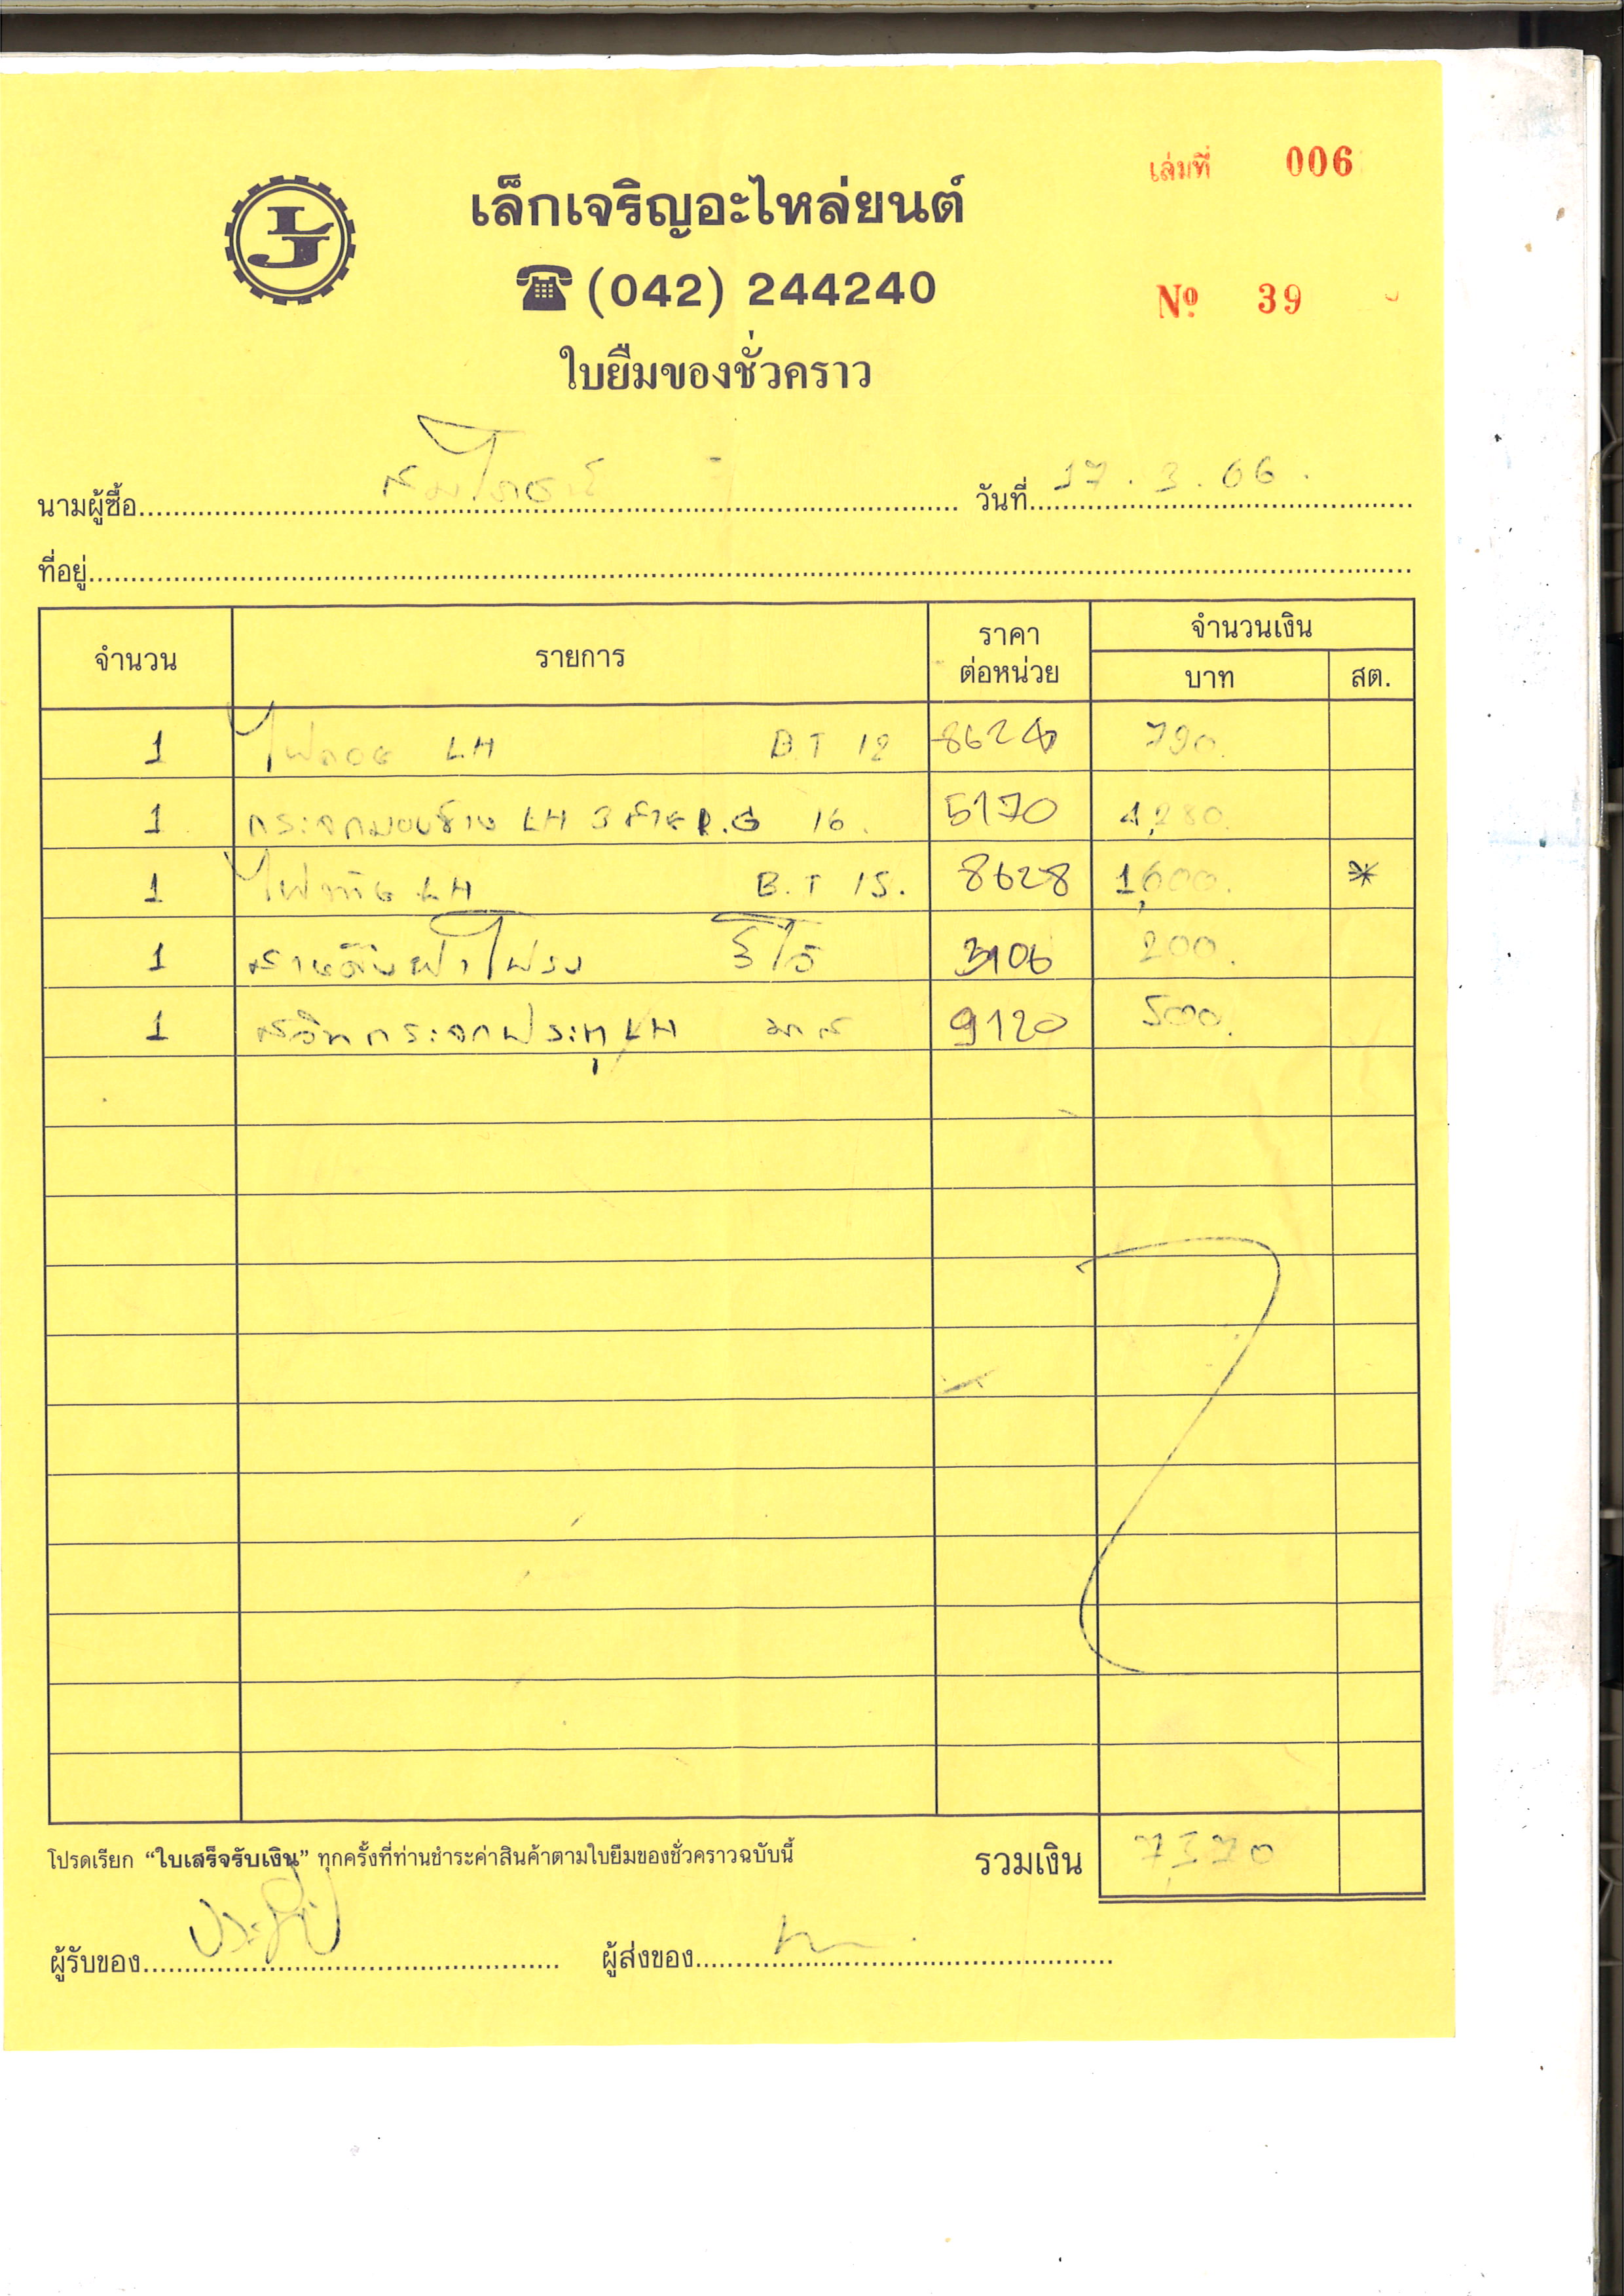 เล่มที่ 006
LJ
เล็กเจริญอะไหล่ยนต์
☎ (042) 244240
Nº 39
ใบยืมของชั่วคราว
นามผู้ซื้อ วันที่ 17.3.66.
ที่อยู่
จำนวน รายการ ราคาต่อหน่วย จำนวนเงิน
บาท สต.
1 LH B.T 12 8624 790.
1 กระจกมองข้าง LH 3 สาย R.G 16. 5170 4,280.
1 ไฟท้าย LH B.T 15. 8628 1,600. *
1 สายดึงฝาโปรง วีโก้ 3106 200.
1 สวิทกระจกประตู LH 9120 500.
โปรดเรียก “ใบเสร็จรับเงิน” ทุกครั้งที่ท่านชำระค่าสินค้าตามใบยืมของชั่วคราวฉบับนี้ รวมเงิน 7,370
ผู้รับของ ผู้ส่งของ